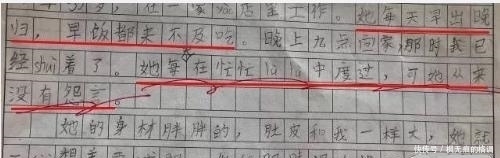 岁，在一家饭店里工作。她每天早出晚
归，早饭都来不及吃。晚上九点回家，那时我已
经shuì着了。她每在忙忙lù lù中度过，可她从来
没有怨言。
她的身材胖胖的，肚皮和我一样大，她
快传号/模无痕的格调